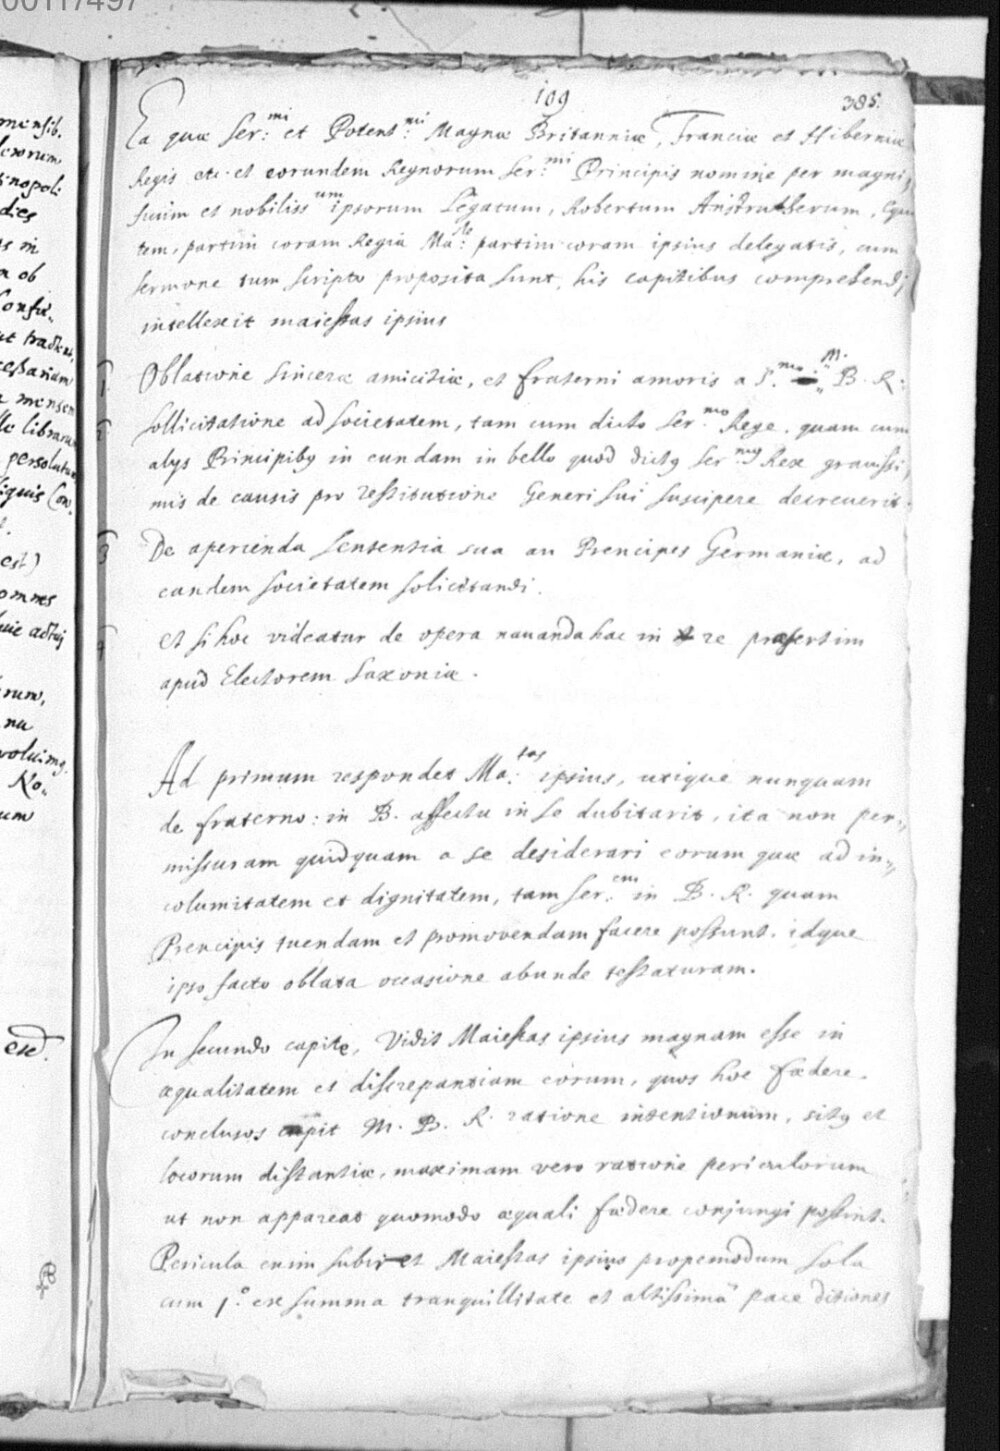 00117497
109
385.
Ea quæ Ser:mi et Potent:mi Magnæ Britanniæ, Franciæ et Hiberniæ
Regis etc. et eorundem Regnorum Ser:mi Principis nomine per magni,
ficum et nobiliss um ipsorum Legatum, Robertum Anstrutherum, Equi
tem, partim coram Regia Ma:te partim coram ipsius delegatis, cum
sermone tum scripto proposita sunt, his capitibus comprehendi
intellexit maiestas ipsius
1. Oblatione sinceræ amicitiæ, et fraterni amoris a S.mo M. B. R.
2. Sollicitatione ad societatem, tam cum dicto Ser.mo Rege. quam cum
alys Principibꝰ in eundam in bello quod dictꝰ Ser.mꝰ Rex gravissi,
mis de causis pro restitutione Generi sui suscipere decreverit.
3 De aperienda sententia sua an Principes Germaniæ, ad
eandem societatem solicitandi.
4 et si hoc videatur de opera navanda hac in re præsertim
apud Electorem Saxoniæ.
Ad primum respondet Ma:tas ipsius, utique nunquam
de fraterno: in B. affectu in se dubitarit, ita non per,,
missuram quidquam a se desiderari eorum quæ ad in,,
columitatem et dignitatem, tam Ser:em in B. R. quam
Principis tuendam et promovendam facere possunt. idque
ipso facto oblata occasione abunde testaturam.
In secundo capite, Vidit Maiestas ipsius magnam esse in
æqualitatem et discrepantiam eorum, quos hoc fœdere
conclusos cupit M. B. R. ratione intentionum, sitꝰ et
locorum distantiæ, maximam vero ratione periculorum
ut non appareat quomodo æquali fœdere conjungi possint.
Pericula enim subiret Maiestas ipsius propemodum sola
cum 1.o ex summa tranquillitate et altissimâ pace ditiones
mensib.
dies
ob
mensem
est)
omnes
rum,
No,,
um